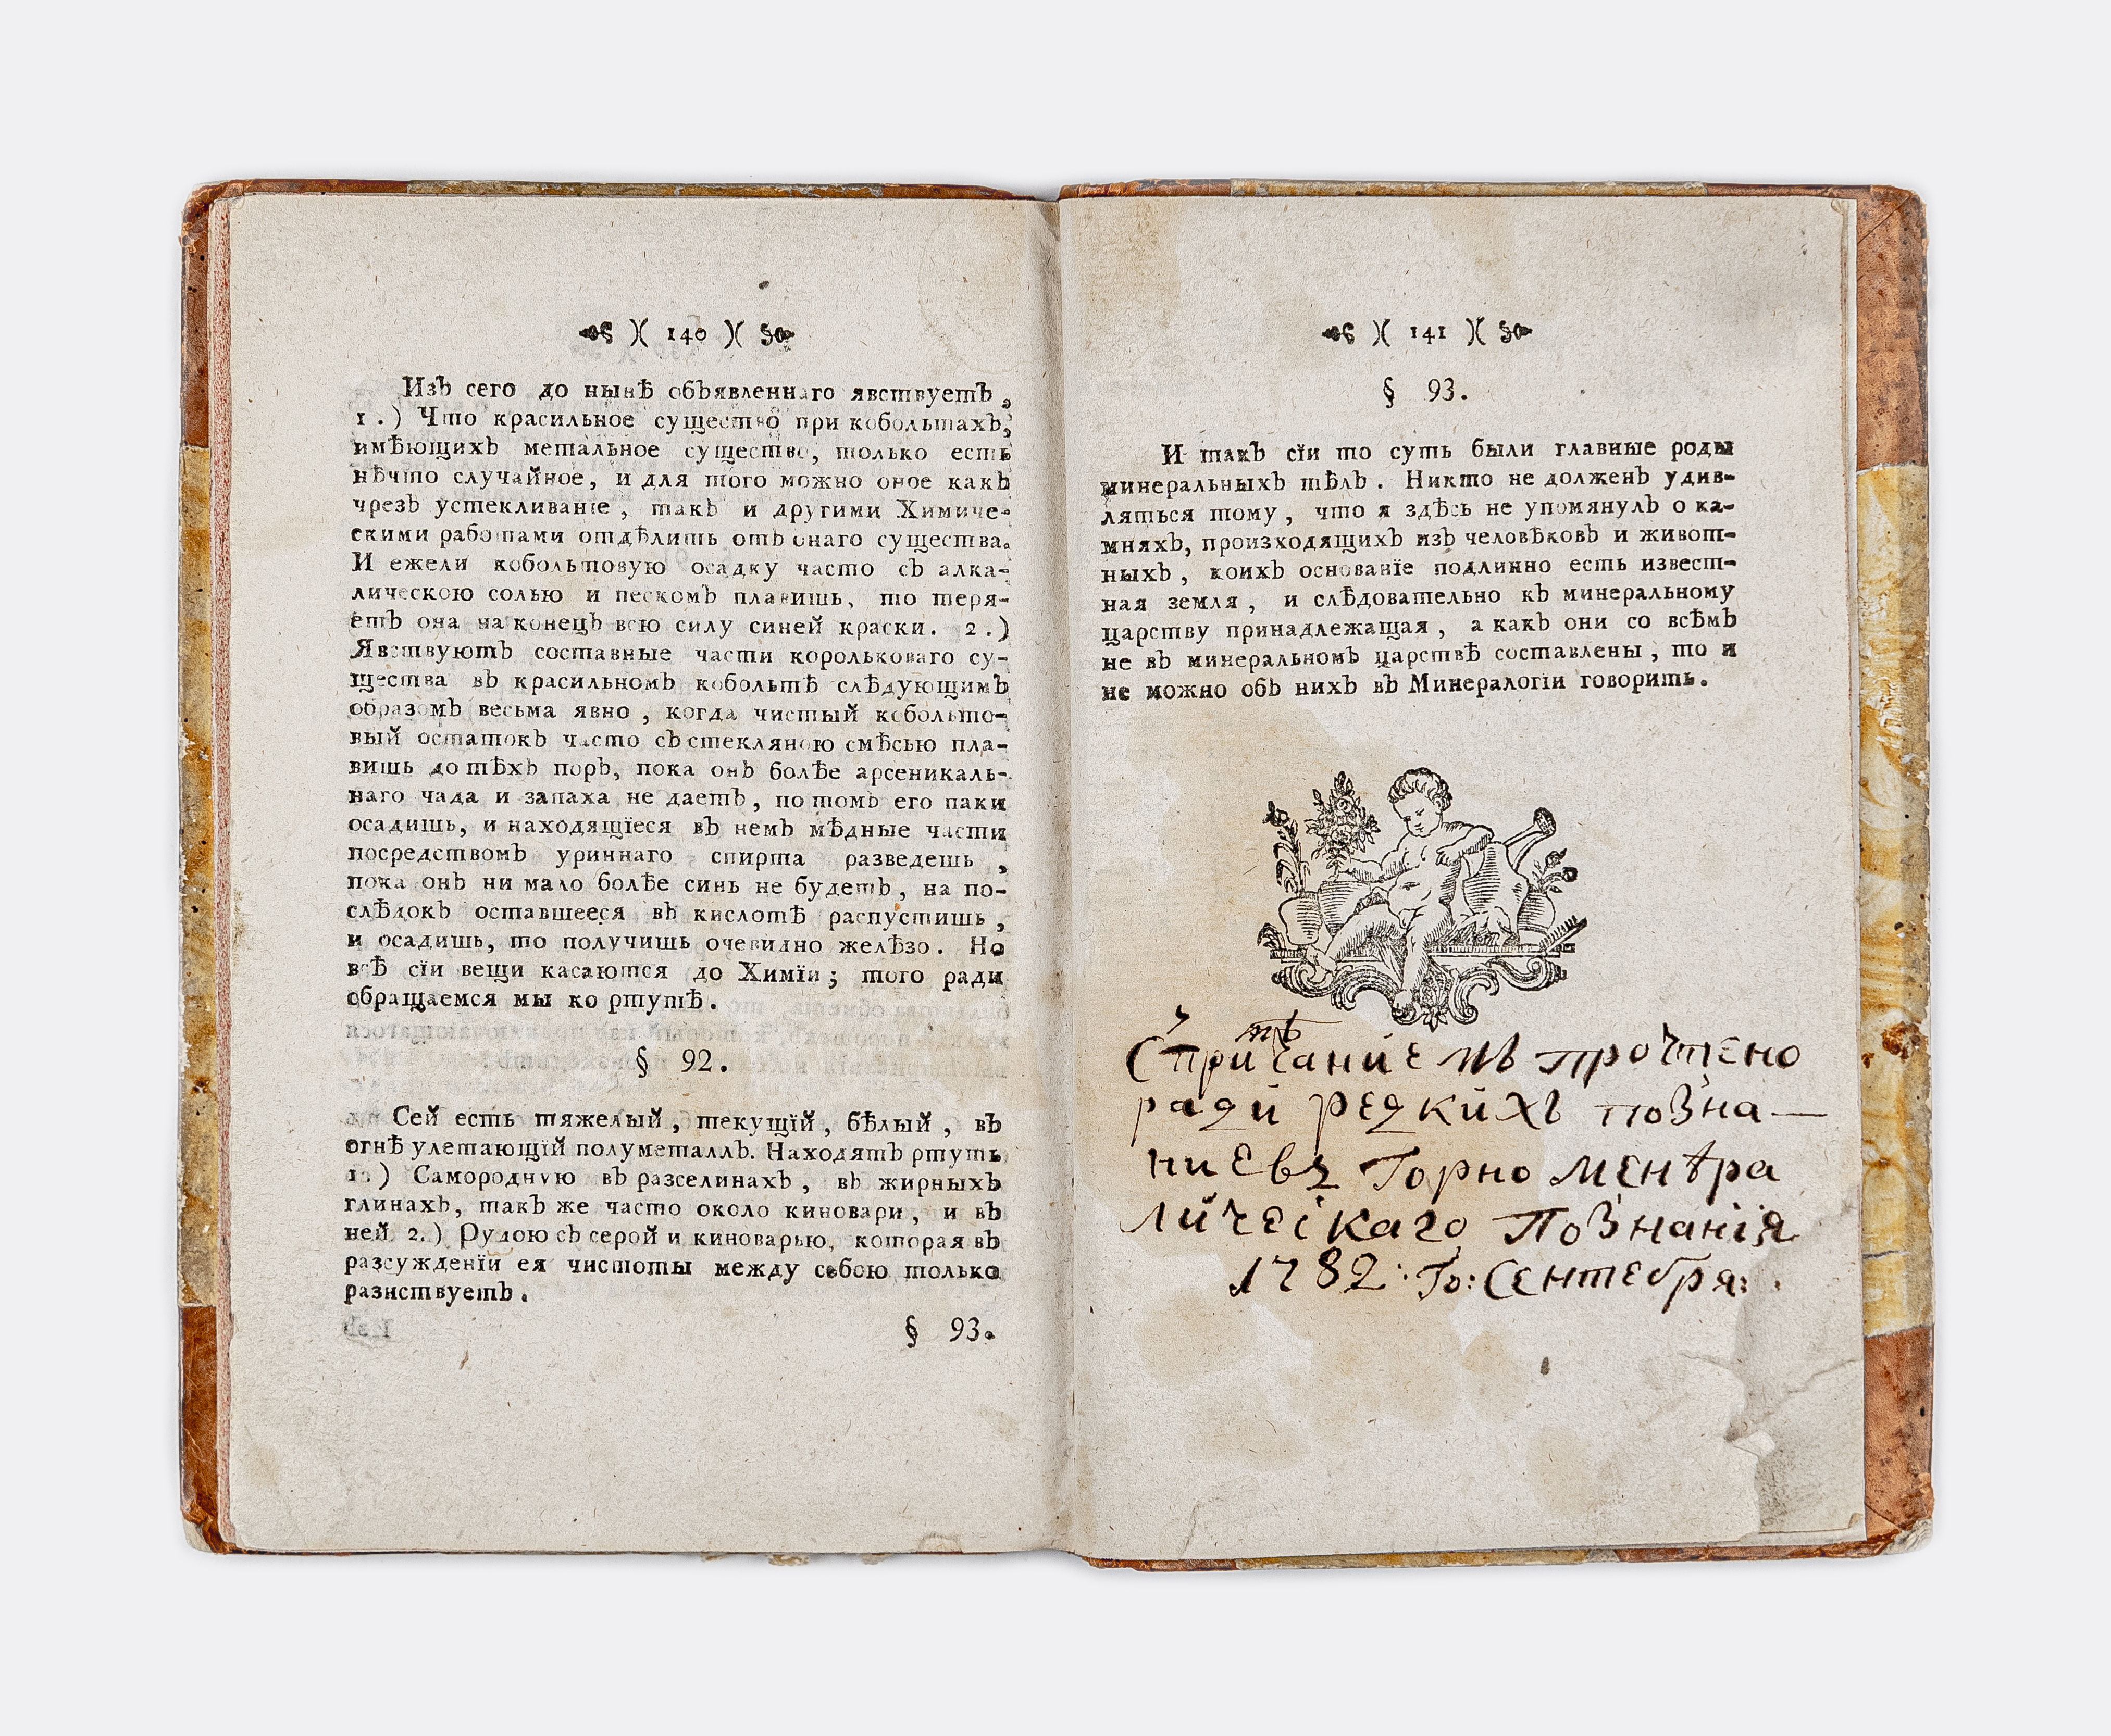 140
Изъ сего до нынѣ объявленнаго явствуетъ,
1.) Что красильное существо при кобольтахъ,
имѣющихъ метальное существо, только есть
нѣчто случайное, и для того можно оное какъ
чрезъ устекливанїе, такъ и другими Химиче-
скими работами отдѣлить отъ онаго существа.
И ежели кобольтовую осадку часто съ алка-
лическою солью и пескомъ плавишь, то теря-
етъ она на конецъ всю силу синей краски. 2.)
Явствуютъ составные части корольковаго су-
щества въ красильномъ кобольтѣ слѣдующимъ
образомъ весьма явно, когда чистый кобольто-
вый остатокъ часто съ стекляною смѣсью пла-
вишь до тѣхъ поръ, пока онъ болѣе арсеникаль-
наго чада и запаха не даетъ, по томъ его паки
осадишь, и находящїеся въ немъ мѣдные части
посредствомъ уриннаго спирта разведешь,
пока онъ ни мало болѣе синь не будетъ, на по-
слѣдокъ оставшееся въ кислотѣ распустишь,
и осадишь, то получишь очевидно желѣзо. Но
всѣ сїи вещи касаются до Химїи; того ради
обращаемся мы ко ртутѣ.
§ 92.
Сей есть тяжелый, текущїй, бѣлый, въ
огнѣ улетающїй полуметаллъ. Находятъ ртуть
1.) Самородную въ разселинахъ, въ жирныхъ
глинахъ, такъ же часто около киновари, и въ
ней 2.) Рудою съ серой и киноварью, которая въ
разсужденїи ея чистоты между собою только
разнствуетъ.
§ 93.
141
§ 93.
И такъ сїи то суть были главные роды
минеральныхъ тѣлъ. Никто не долженъ удив-
ляться тому, что я здѣсь не упомянулъ о ка-
мняхъ, произходящихъ изъ человѣковъ и живот-
ныхъ, коихъ основанїе подлинно есть извест-
ная земля, и слѣдовательно къ минеральному
царству принадлежащая, а какъ они со всѣмъ
не въ минеральномъ царствѣ составлены, то и
не можно объ нихъ въ Минералогїи говорить.
прочтено
ради редкихъ позна—
ниевъ Горно менѣра
личеiскаго Познанiя
1782: Го: Сентебря: